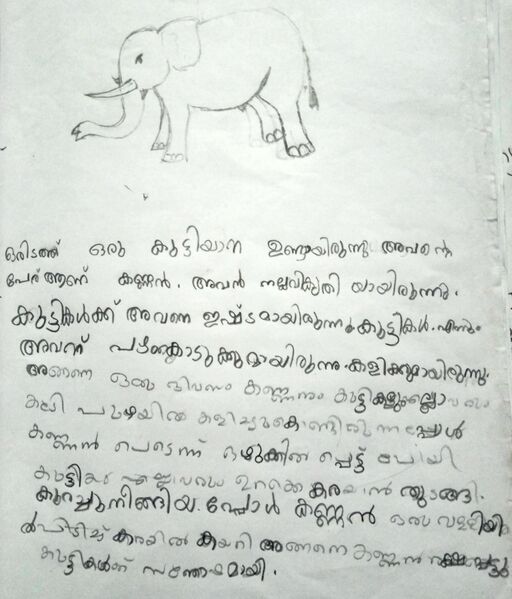 ഒരിടത്ത് ഒരു കുട്ടിയാന ഉണ്ടായിരുന്നു അവന്റെ
പേര് ആണ് കണ്ണൻ. അവൻ നല്ലവികൃതി യായിരുന്നു.
കുട്ടികൾക്ക് അവനെ ഇഷ്ടമായിരുന്നു കുട്ടികൾ. എന്നും
അവന് പഴംകൊടുക്കുമായിരുന്നു. കളിക്കുമായിരുന്നു.
അങ്ങനെ ഒരു ദിവസം കണ്ണനും കുട്ടികളുമെല്ലാവരും
കൂടി പുഴയിൽ കളിച്ചുകൊണ്ടിരുന്നപ്പോൾ
കണ്ണൻ പെടെന്ന് ഒഴുക്കിൽ പ്പെട്ട് പോയി
കുട്ടികൾ എല്ലാവരും ഉറക്കെ കരയാൻ തുടങ്ങി.
കുറച്ചുനീങ്ങിയ.പ്പോൾ കണ്ണൻ ഒരു വള്ളിയി
ൽപിടിച്ച് കരയിൽ കയറി അങ്ങനെ കണ്ണൻ രക്ഷപ്പെട്ടു
കുട്ടികൾക്ക് സന്തോഷമായി.